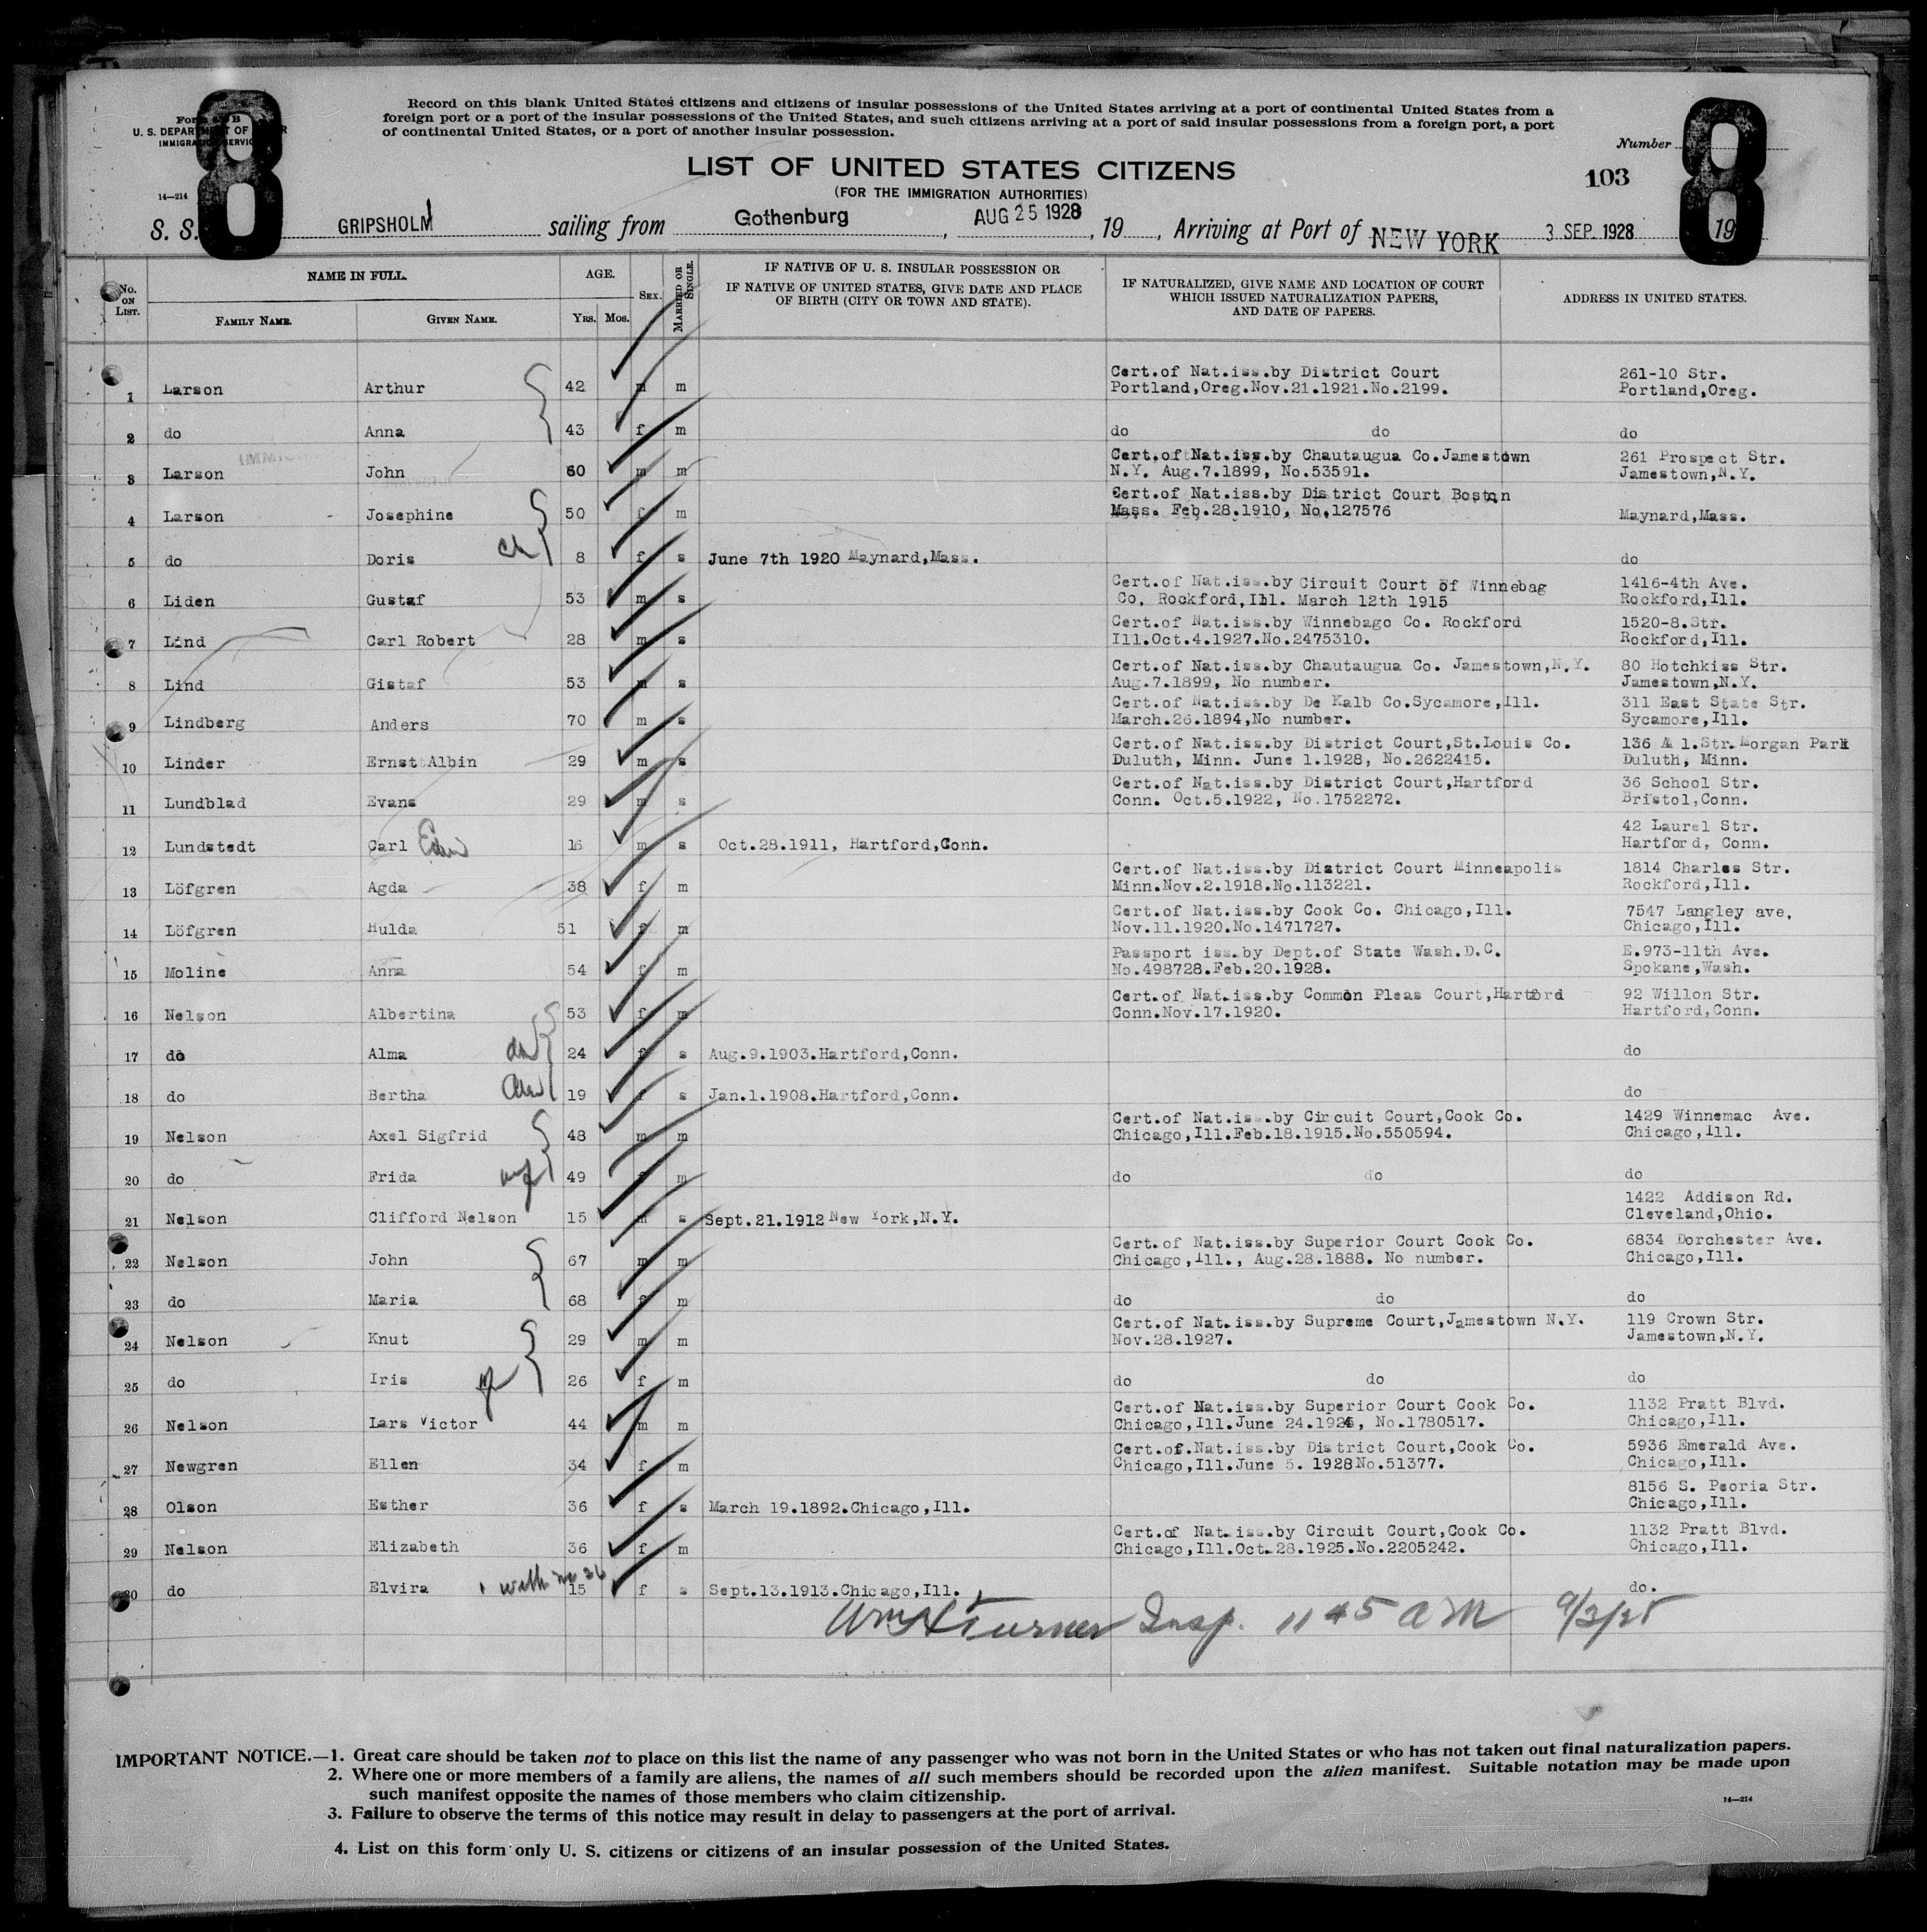 8
8
Form 630 B
U. S. DEPARTMENT OF LABOR
IMMIGRATION SERVICE
14—214
Record on this blank United States citizens and citizens of insular possessions of the United States arriving at a port of continental United States from a
foreign port or a port of the insular possessions of the United States, and such citizens arriving at a port of said insular possessions from a foreign port, a port
of continental United States, or a port of another insular possession.
Number
103
LIST OF UNITED STATES CITIZENS
(FOR THE IMMIGRATION AUTHORITIES)
S. S. GRIPSHOLM sailing from Gothenburg, AUG 25 1928, 19 , Arriving at Port of NEW YORK 3 SEP. 1928 19
No. ON LIST. NAME IN FULL. AGE. SEX. MARRIED OR SINGLE. IF NATIVE OF U. S. INSULAR POSSESSION OR IF NATIVE OF UNITED STATES, GIVE DATE AND PLACE OF BIRTH (CITY OR TOWN AND STATE). IF NATURALIZED, GIVE NAME AND LOCATION OF COURT WHICH ISSUED NATURALIZATION PAPERS, AND DATE OF PAPERS. ADDRESS IN UNITED STATES.
FAMILY NAME. GIVEN NAME. YRS. MOS.
Cert.of Nat.iss.by District Court 261-10 Str.
1 Larson Arthur 42 m m Portland,Oreg.Nov.21.1921.No.2199. Portland,Oreg.
2 do Anna 43 f m do do do
Cert.of Nat.iss.by Chautaugua Co.Jamestown 261 Prospect Str.
3 Larson John 60 m m N.Y. Aug.7.1899, No.53591. Jamestown,N.Y.
Cert.of Nat.iss.by District Court Boston
4 Larson Josephine 50 f m Mass. Feb.28.1910, No.127576 Maynard,Mass.
5 do Doris ch 8 f s June 7th 1920 Maynard,Mass. do
Cert.of Nat.iss.by Circuit Court of Winnebag 1416-4th Ave.
6 Liden Gustaf 53 m s Co, Rockford,Ill. March 12th 1915 Rockford,Ill.
Cert.of Nat.iss.by Winnebago Co. Rockford 1520-8.Str.
7 Lind Carl Robert 28 m s Ill.Oct.4.1927.No.2475310. Rockford,Ill.
Cert.of Nat.iss.by Chautaugua Co. Jamestown,N.Y. 80 Hotchkiss Str.
8 Lind Gistaf 53 m s Aug.7.1899, No number. Jamestown,N.Y.
Cert.of Nat.iss.by De Kalb Co.Sycamore,Ill. 311 East State Str.
9 Lindberg Anders 70 m s March.26.1894,No number. Sycamore,Ill.
Cert.of Nat.iss.by District Court,St.Louis Co. 136 A 1.Str.Morgan Park
10 Linder Ernst Albin 29 m s Duluth, Minn. June 1.1928, No.2622415. Duluth, Minn.
Cert.of Nat.iss.by District Court,Hartford 36 School Str.
11 Lundblad Evans 29 m s Conn. Oct.5.1922, No.1752272. Bristol,Conn.
42 Laurel Str.
12 Lundstedt Carl 16 m s Oct.28.1911, Hartford,Conn. Hartford, Conn.
Cert.of Nat.iss.by District Court Minneapolis 1814 Charles Str.
13 Löfgren Agda 38 f m Minn.Nov.2.1918.No.113221. Rockford,Ill.
Cert.of Nat.iss.by Cook Co. Chicago,Ill. 7547 Langley ave,
14 Löfgren Hulda 51 f m Nov.11.1920.No.1471727. Chicago,Ill.
Passport iss.by Dept.of State Wash.D.C. E.973-11th Ave.
15 Moline Anna 54 f m No.498728.Feb.20.1928. Spokane,Wash.
Cert.of Nat.iss.by Common Pleas Court,Hartford 92 Willon Str.
16 Nelson Albertina 53 f m Conn.Nov.17.1920. Hartford,Conn.
17 do Alma 24 f s Aug.9.1903.Hartford,Conn. do
18 do Bertha 19 f s Jan.1.1908.Hartford,Conn. do
Cert.of Nat.iss.by Circuit Court,Cook Co. 1429 Winnemac Ave.
19 Nelson Axel Sigfrid 48 m m Chicago,Ill.Feb.18.1915.No.550594. Chicago,Ill.
20 do Frida wf 49 f m do do do
1422 Addison Rd.
21 Nelson Clifford Nelson 15 m s Sept.21.1912 New York,N.Y. Cleveland,Ohio.
Cert.of Nat.iss.by Superior Court Cook Co. 6834 Dorchester Ave.
22 Nelson John 67 m m Chicago,Ill., Aug.28.1888. No number. Chicago,Ill.
23 do Maria 68 f m do do do
Cert.of Nat.iss.by Supreme Court,Jamestown N.Y. 119 Crown Str.
24 Nelson Knut 29 m m Nov.28.1927. Jamestown,N.Y.
25 do Iris 26 f m do do do
Cert.of Nat.iss.by Superior Court Cook Co. 1132 Pratt Blvd.
26 Nelson Lars Victor 44 m m Chicago,Ill.June 24.1924, No.1780517. Chicago,Ill.
Cert.of.Nat.iss.by District Court,Cook Co. 5936 Emerald Ave.
27 Newgren Ellen 34 f m Chicago,Ill.June 5. 1928No.51377. Chicago,Ill.
8156 S. Peoria Str.
28 Olson Esther 36 f s March 19.1892.Chicago,Ill. Chicago,Ill.
Cert.of Nat.iss.by Circuit Court,Cook Co. 1132 Pratt Blvd.
29 Nelson Elizabeth 36 f m Chicago,Ill.Oct.28.1925.No.2205242. Chicago,Ill.
30 do Elvira with no 26 15 f s Sept.13.1913.Chicago,Ill. do.
Wm H Turner Insp. 11 45 AM 9/3/28
IMPORTANT NOTICE.—1. Great care should be taken not to place on this list the name of any passenger who was not born in the United States or who has not taken out final naturalization papers.
2. Where one or more members of a family are aliens, the names of all such members should be recorded upon the alien manifest. Suitable notation may be made upon
such manifest opposite the names of those members who claim citizenship.
3. Failure to observe the terms of this notice may result in delay to passengers at the port of arrival.
14—214
4. List on this form only U. S. citizens or citizens of an insular possession of the United States.